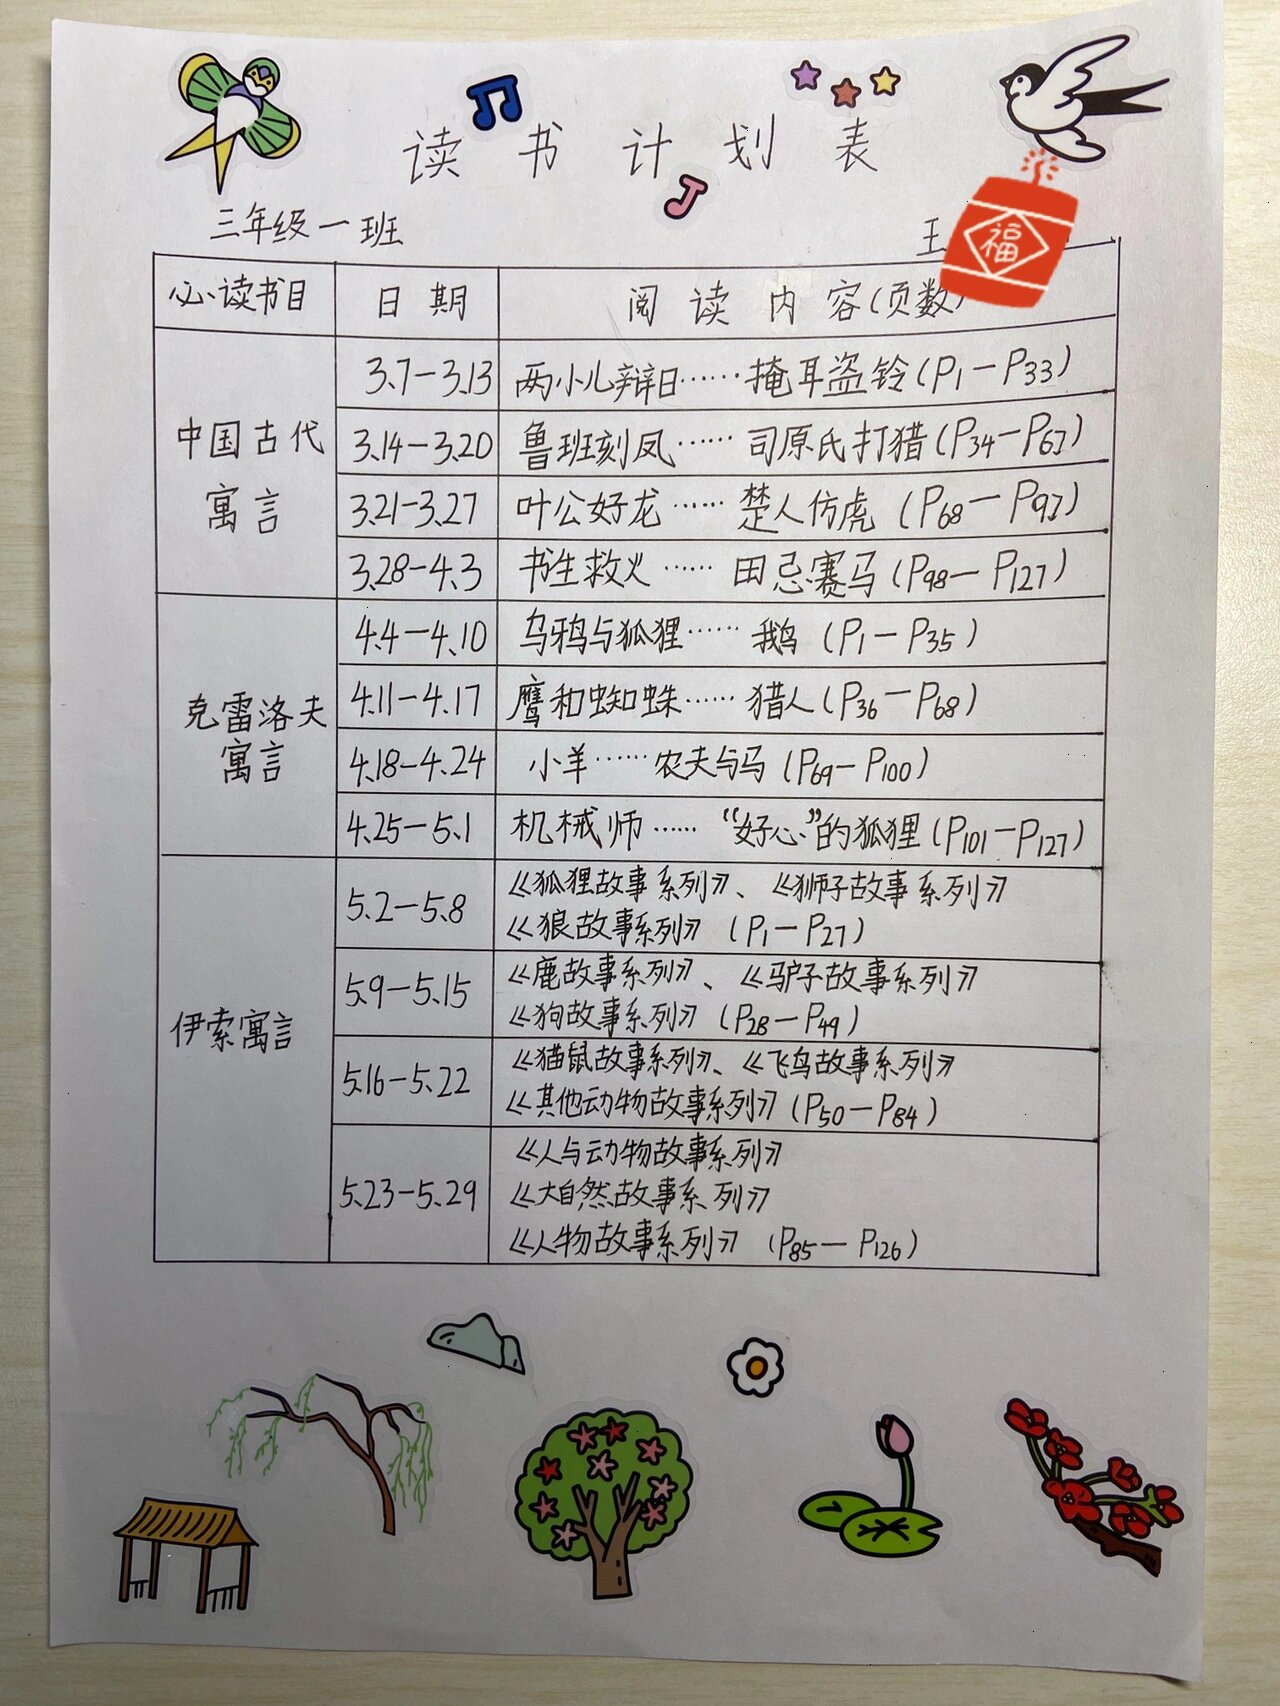 读书计划表
三年级一班 王
福
必读书目 日期 阅读内容(页数)
中国古代
寓言
3.7-3.13 两小儿辩日……掩耳盗铃(P1-P33)
3.14-3.20 鲁班刻凤……司原氏打猎(P34-P67)
3.21-3.27 叶公好龙……楚人仿虎(P68-P97)
3.28-4.3 书生救火……田忌赛马(P98-P127)
克雷洛夫
寓言
4.4-4.10 乌鸦与狐狸……鹅(P1-P35)
4.11-4.17 鹰和蜘蛛……猎人(P36-P68)
4.18-4.24 小羊……农夫与马(P69-P100)
4.25-5.1 机械师……“好心”的狐狸(P101-P127)
伊索寓言
5.2-5.8 《狐狸故事系列》、《狮子故事系列》
《狼故事系列》(P1-P27)
5.9-5.15 《鹿故事系列》、《驴子故事系列》
《狗故事系列》(P28-P49)
5.16-5.22 《猫鼠故事系列》、《飞鸟故事系列》
《其他动物故事系列》(P50-P84)
5.23-5.29 《人与动物故事系列》
《大自然故事系列》
《人物故事系列》(P85-P126)